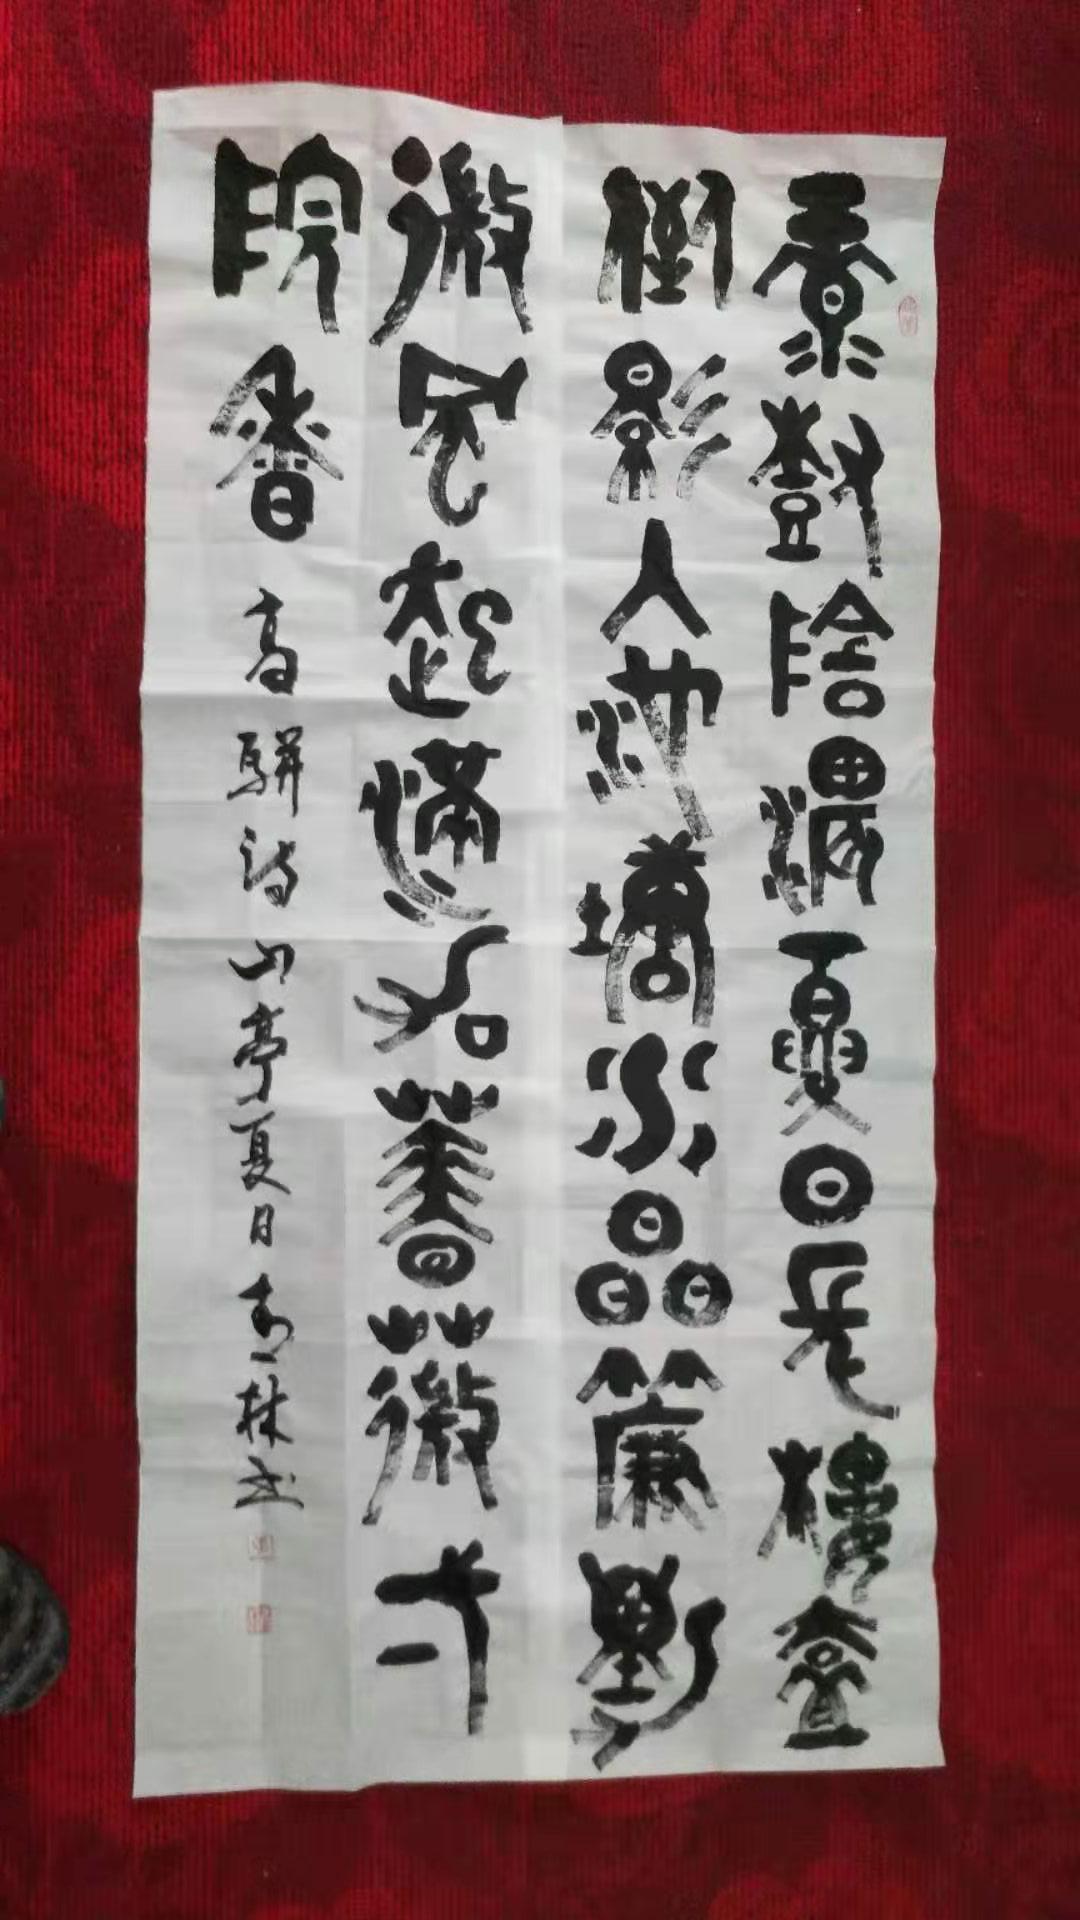 綠樹陰濃夏日長樓臺
倒影入池塘水晶簾動
微風起滿架薔薇弌
院香 高駢詩山亭夏日 林書